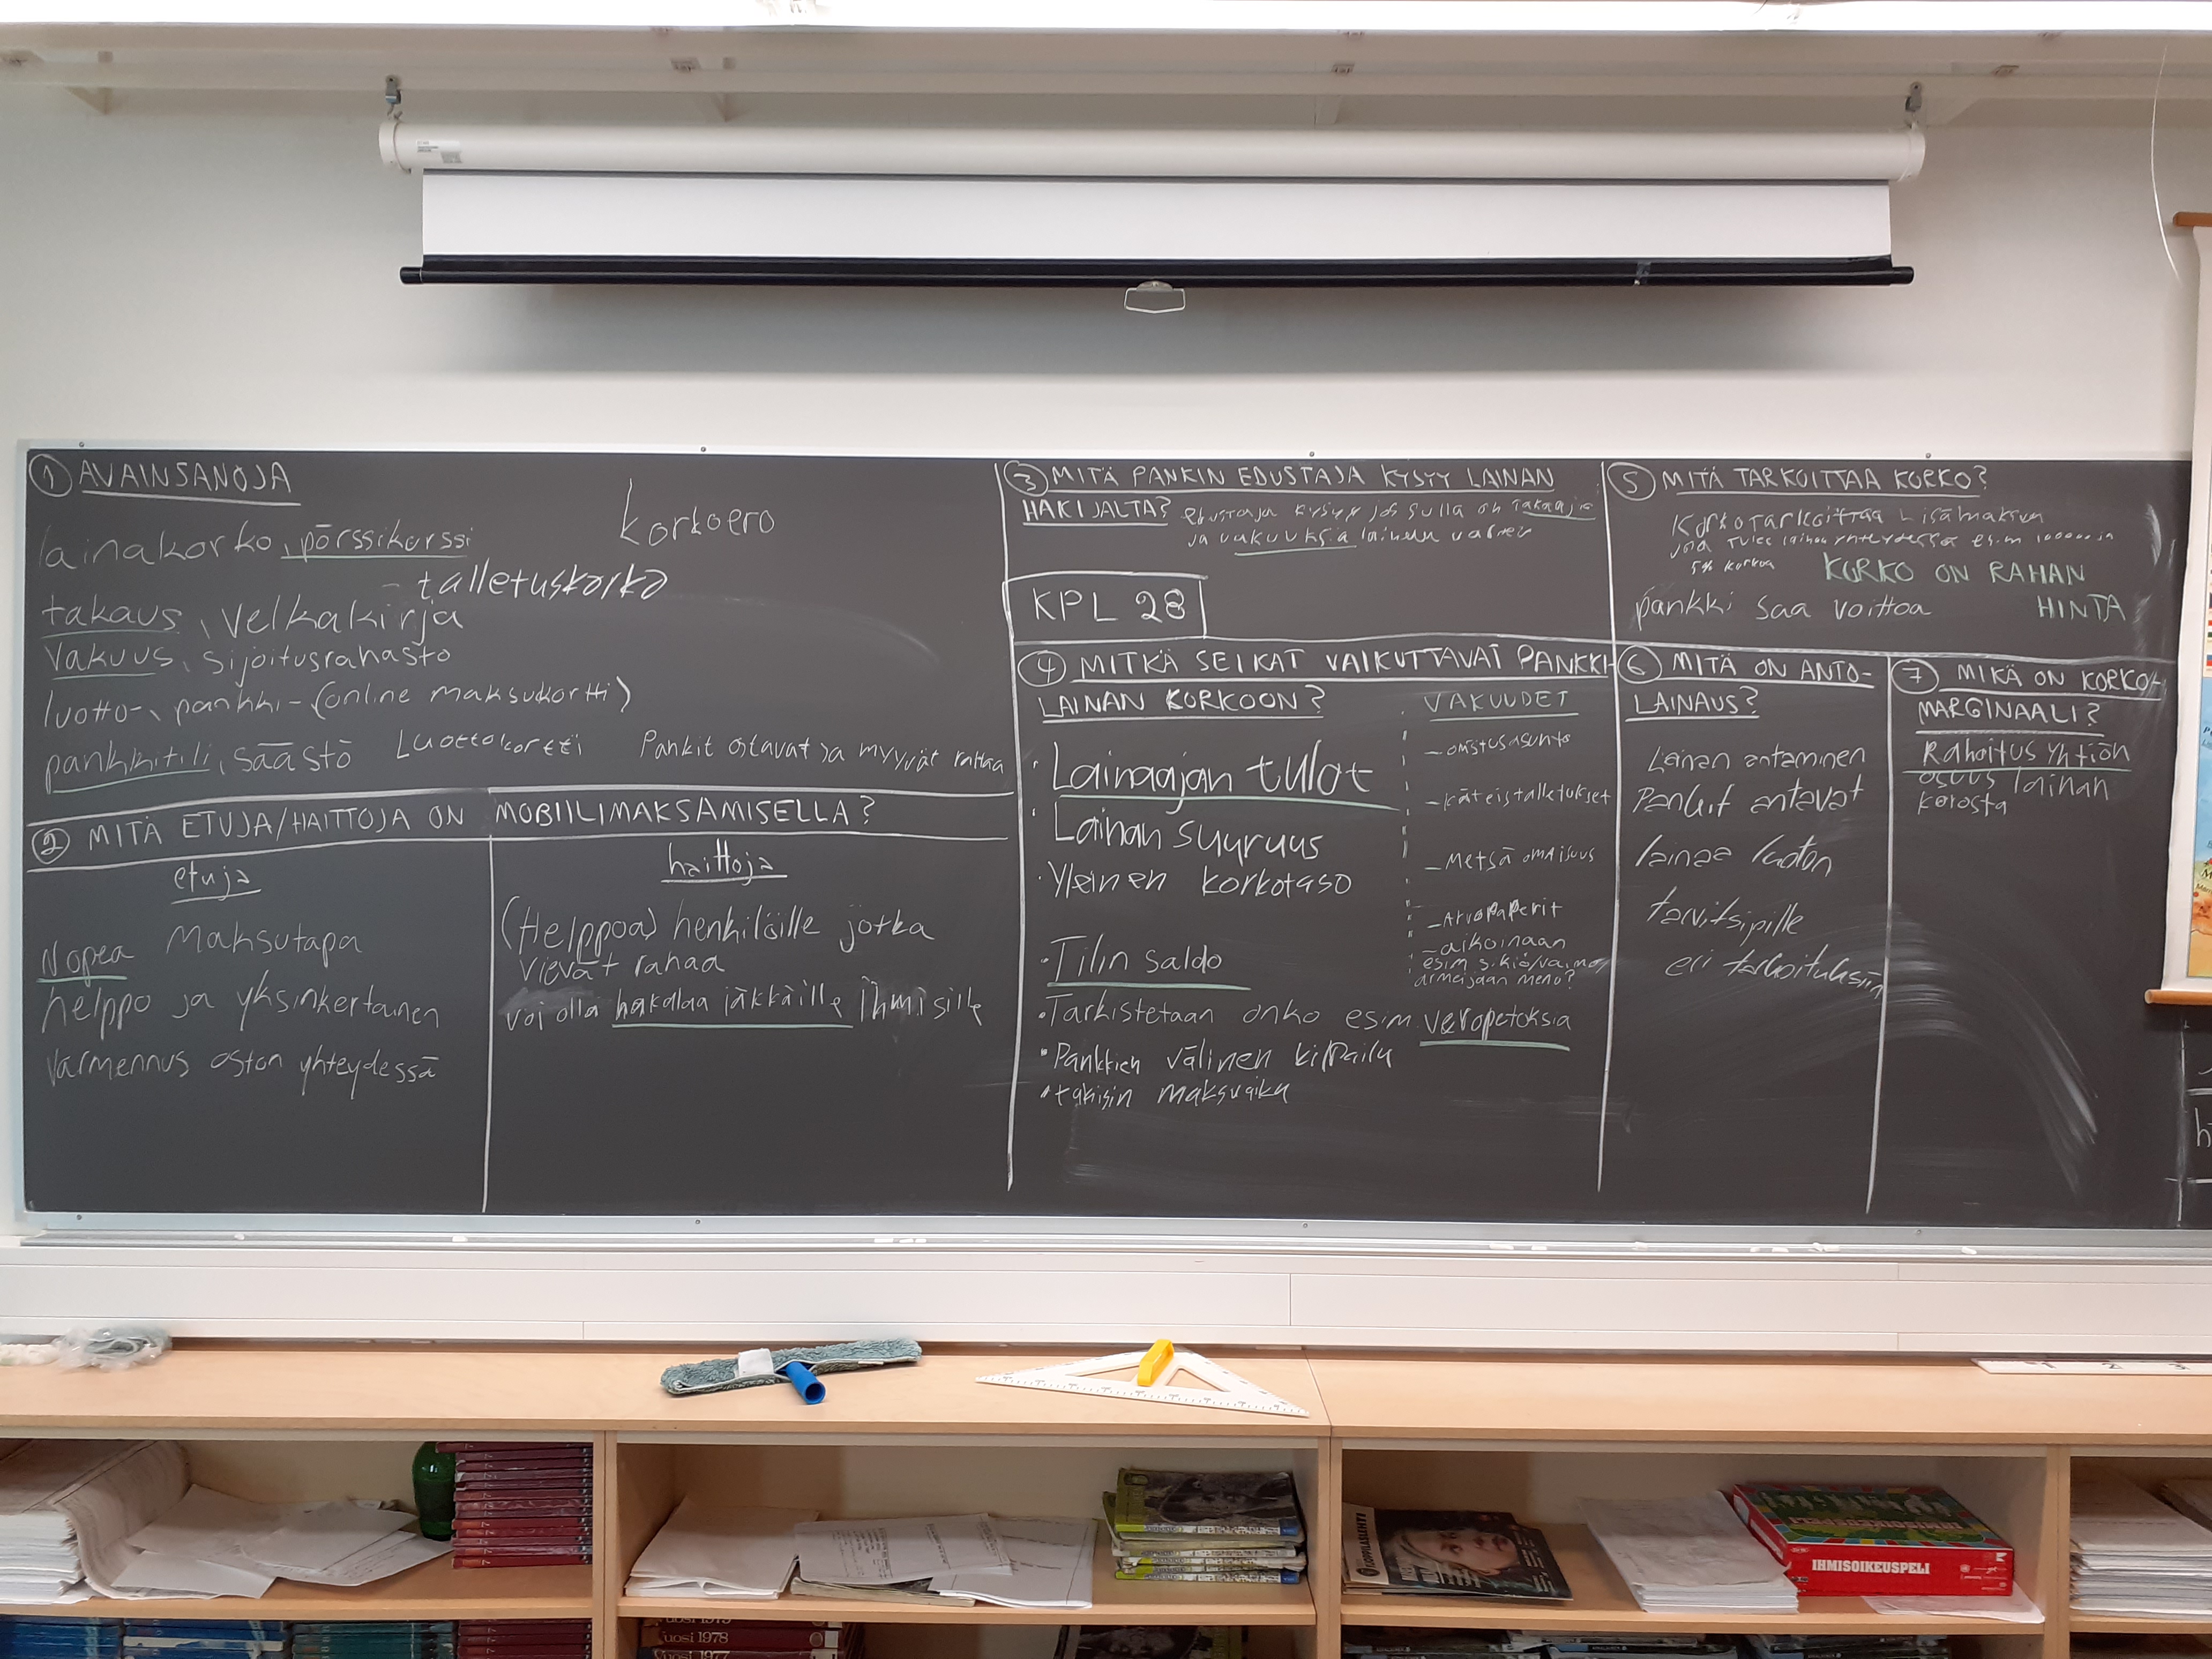 ① AVAINSANOJA
korkoero
lainakorko, pörssikurssi
- talletuskorko
takaus, velkakirja
Vakuus, sijoitusrahasto
luotto-, pankki- (online maksukortti)
pankkitili, säästö Luottokortti Pankit ostavat ja myyvät rahaa
② MITÄ ETUJA/HAITTOJA ON MOBIILIMAKSAMISELLA?
etuja
Nopea maksutapa
helppo ja yksinkertainen
varmennus oston yhteydessä
haittoja
(Helppoa) henkilöille jotka
vievät rahaa
voi olla hakalaa iäkkäille ihmisille
③ MITÄ PANKIN EDUSTAJA KYSYY LAINAN
HAKIJALTA? edustaja kysyy jos sulla on takaajia
ja vakuuksia lainaa varten
KPL 28
④ MITKÄ SEIKAT VAIKUTTAVAT PANKKI-
LAINAN KORKOON?
· Lainaajan tulot
· Lainan suuruus
· Yleinen korkotaso
· Tilin saldo
· Tarkistetaan onko esim. veropetoksia
· Pankkien välinen kilpailu
· takisin maksuaika
VAKUUDET
- omistusasunto
- käteistalletukset
- Metsä omaisuus
- Arvopaperit
- aikoinaan
esim sikiö/vaimo/
armeijaan meno?
⑤ MITÄ TARKOITTAA KORKO?
Korko tarkoittaa lisämaksun
jota tulee lainan yhteydessä esim 100000 ja
5% korkoa
KORKO ON RAHAN
HINTA
pankki saa voittoa
⑥ MITÄ ON ANTO-
LAINAUS?
Lainan antaminen
Pankit antavat
lainaa luoton
tarvitsijille
eri tarkoituksiin
⑦ MIKÄ ON KORKO-
MARGINAALI?
Rahoitus yhtiön
osuus lainan
korosta
IHMISOIKEUSPELI
uosi 1978
uosi 1977